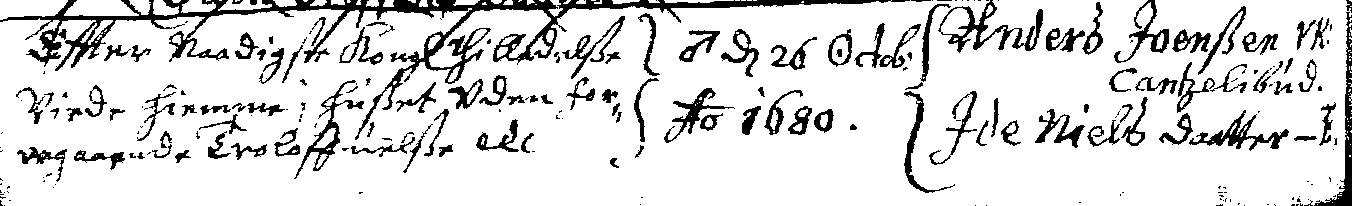 Effter Naadigste Kongl Thilladelsse
Viede hiemme i Husset Uden for-
regaaende Troloffuelsse etc
♂ d 26 Octob:
Ao 1680.
Anders Joensßen
Cantzelibud.
Ide Niels Daatter